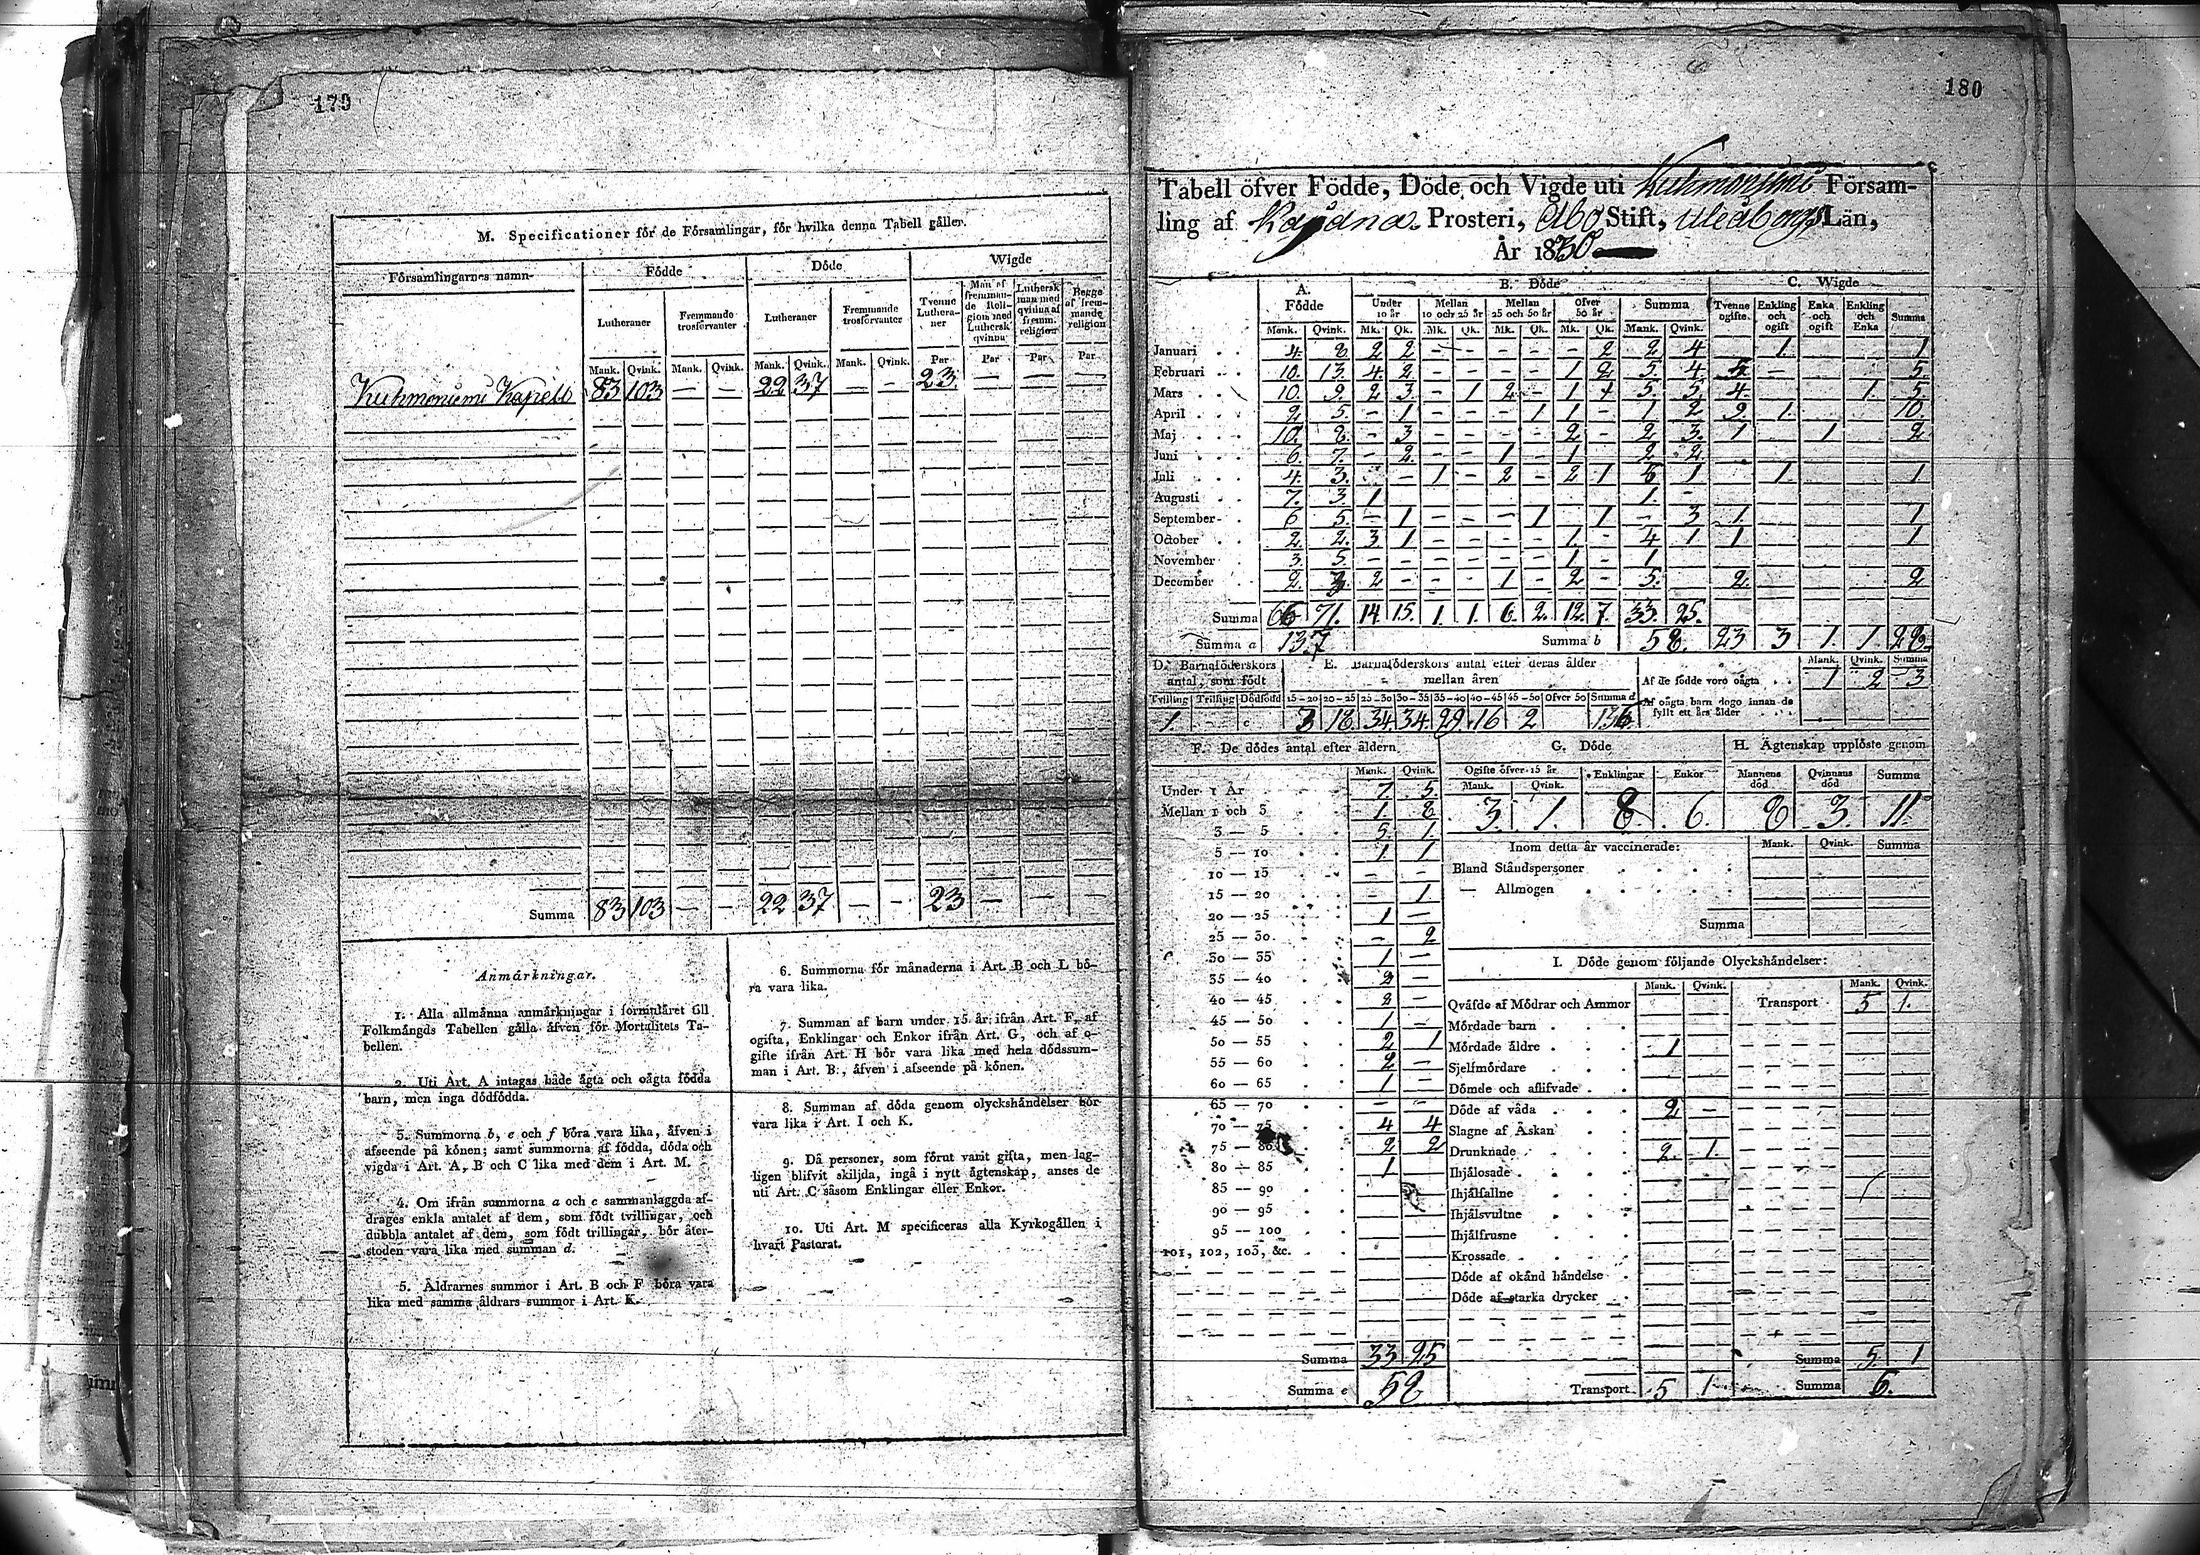 179
M. Specificationer för de Församlingar, för hvilka denna Tabell gäller.
Församlingarnes namn
Födde
Döde
Wigde
Lutheraner
Fremmande trosförvanter
Lutheraner
Fremmande trosförvanter
Tvenne Lutheraner
Man af fremmande Religion med Luthersk qvinna
Luthersk man med qvinna af fremm. religion
Begge af fremmande religion
Mank. Qvink. Mank. Qvink. Mank. Qvink. Mank. Qvink. Par Par Par Par
Kuhmoniemi Kapell 83 103 — — 22 37 — — 23 — — —
Summa 83 103 — — 22 37 — — 23 — — —
Anmärkningar.
1. Alla allmänna anmärkningar i formuläret till
Folkmängds Tabellen gälla äfven för Mortalitets Ta-
bellen.
2. Uti Art. A intagas både ägta och oägta födda
barn, men inga dödfödda.
3. Summorna b, e och f böra vara lika, äfven i
afseende på könen; samt summorna af födda, döda och
vigda i Art. A, B och C lika med dem i Art. M.
4. Om ifrån summorna a och c sammanlaggda af-
drages enkla antalet af dem, som födt tvillingar, och
dubbla antalet af dem, som födt trillingar, bör åter-
stoden vara lika med summan d.
5. Äldrarnes summor i Art. B och F böra vara
lika med samma åldrars summor i Art. K.
6. Summorna för månaderna i Art. B och L bö-
ra vara lika.
7. Summan af barn under 15 år ifrån Art. F, af
ogifta, Enklingar och Enkor ifrån Art. G, och af o-
gifte ifrån Art. H bör vara lika med hela dödssum-
man i Art. B, äfven i afseende på könen.
8. Summan af döda genom olyckshändelser bör
vara lika i Art. I och K.
9. Då personer, som förut varit gifta, men lag-
ligen blifvit skiljda, ingå i nytt ägtenskap, anses de
uti Art. C såsom Enklingar eller Enkor.
10. Uti Art. M specificeras alla Kyrkogällen i
hvart Pastorat.
180
Tabell öfver Födde, Döde och Vigde uti Kuhmoniemi Församling af Kajana Prosteri, Åbo Stift, Uleåborgs Län,
År 1830
A. Födde
B. Döde
C. Wigde
Under 10 år
Mellan 10 och 25 år
Mellan 25 och 50 år
Öfver 50 år
Summa
Tvenne ogifte
Enkling och ogift
Enka och ogift
Enkling och Enka
Summa
Mank. Qvink. Mk. Qk. Mk. Qk. Mk. Qk. Mk. Qk. Mank. Qvink.
Januari 4 8 2 2 - - - - - 2 2 4 1 1
Februari 10 13 4 2 - - - - 1 2 5 4 5 - 5
Mars 10 9 2 3 - 1 2 - 1 1 5 5 4 1 5
April 2 5 - 1 - - - 1 1 - 1 2 9 1 10
Maj 10 8 - 3 - - - - 2 - 2 3 1 1 2
Juni 6 7 - 2 - - 1 - 1 2 2
Juli 4 3 - 1 - 2 - 2 1 5 1 1 1
Augusti 7 3 1 1 -
September 6 5 - 1 - - - 1 1 - 3 1 1
October 2 2 3 1 - - - - 1 - 4 1 1 1
November 3 5 - - - - - - 1 - 1
December 2 3 2 - - - 1 - 2 - 5 2 2
Summa 66 71 14 15 1 1 6 2 12 7 33 25
Summa a 137
Summa b 58 23 3 1 1 28
D. Barnaföderskors antal, som födt
E. Barnaföderskors antal efter deras ålder mellan åren
Tvilling Trilling Dödfödd 15–20 20–25 25–30 30–35 35–40 40–45 45–50 Öfver 50 Summa d
1 c 3 18 34 34 29 16 2 136
Mank. Qvink. Summa
Af de födde voro oägta 1 2 3
Af oägta barn dogo innan de fyllt ett års ålder
F. De dödes antal efter åldern
Mank. Qvink.
Under 1 År 7 5
Mellan 1 och 3 1 8
3 — 5 5 1
5 — 10 1 1
10 — 15 - -
15 — 20 - 1
20 — 25 1 -
25 — 30 - 2
30 — 35 1 -
35 — 40 2 -
40 — 45 2 -
45 — 50 1 -
50 — 55 2 1
55 — 60 2 -
60 — 65 1 -
65 — 70 - -
70 — 75 4 4
75 — 80 2 2
80 — 85 1
85 — 90
90 — 95
95 — 100
101, 102, 103, &c.
Summa 33 25
Summa e 58
G. Döde
Ogifte öfver 15 år
Enklingar
Enkor
Mank. Qvink.
3 1 8 6
H. Ägtenskap upplöste genom
Mannens död
Qvinnans död
Summa
8 3 11
Inom detta år vaccinerade:
Mank. Qvink. Summa
Bland Ståndspersoner
— Allmogen
Summa
I. Döde genom följande Olyckshändelser:
Mank. Qvink. Mank. Qvink.
Qväfde af Mödrar och Ammor
Transport 5 1
Mördade barn
Mördade äldre 1
Sjelfmördare
Dömde och aflifvade
Döde af våda 2 -
Slagne af Åskan
Drunknade 2 1
Ihjälosade
Ihjälfallne
Ihjälsvultne
Ihjälfrusne
Krossade
Döde af okänd händelse
Döde af starka drycker
Summa 5 1
Transport 5 1
Summa 6